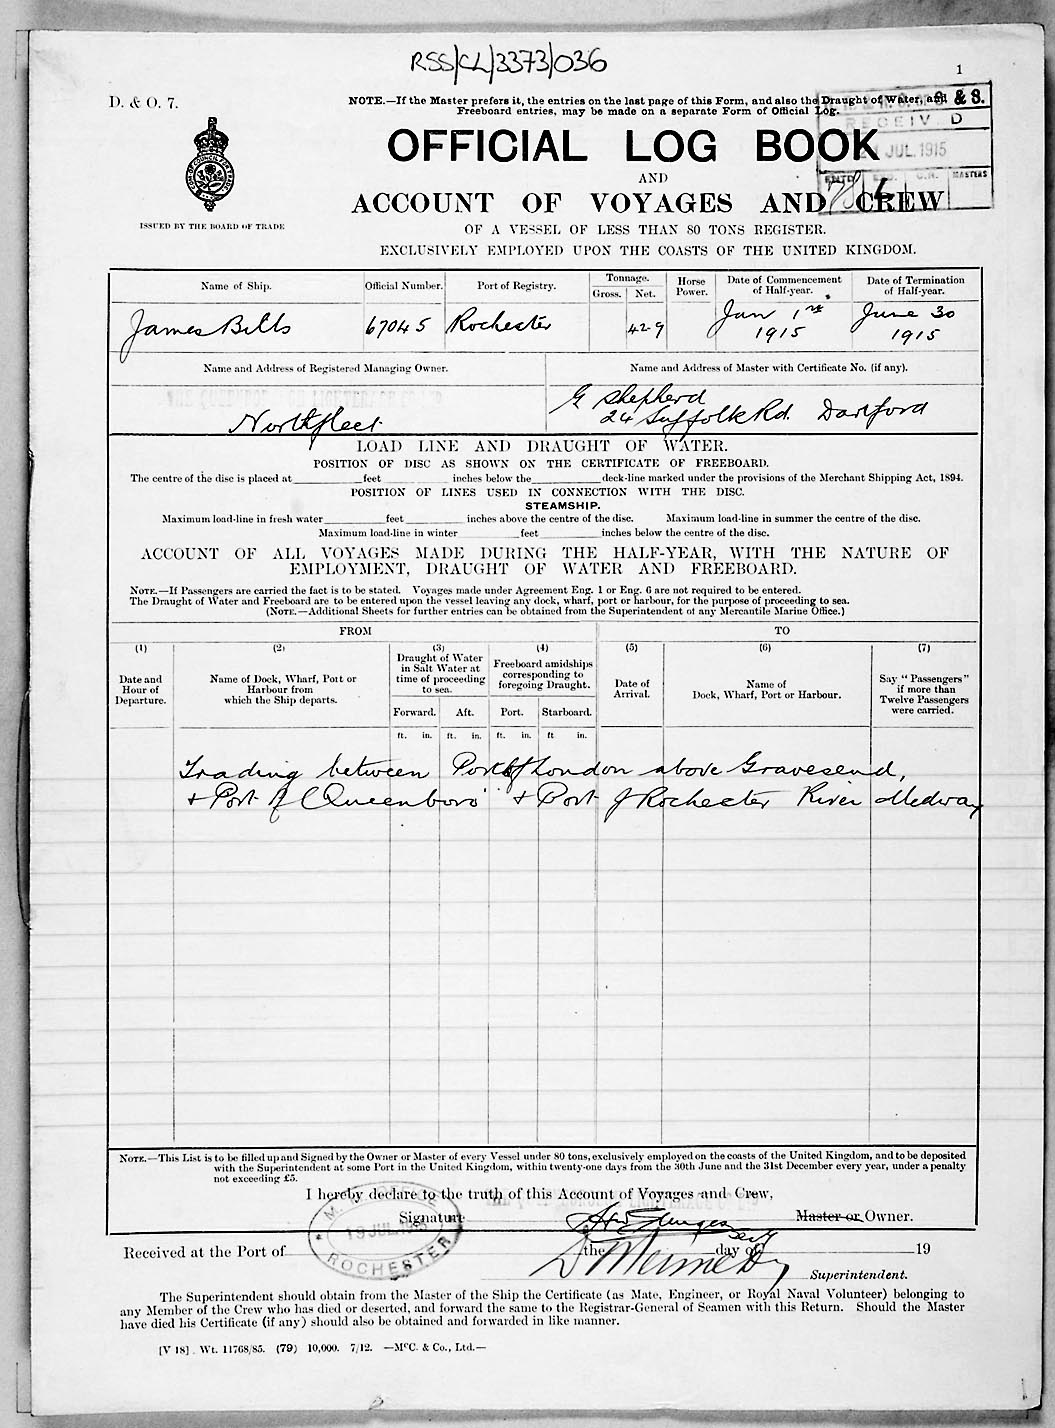 RSS/CL/3373/036
1
D. & O. 7.
NOTE.—If the Master prefers it, the entries on the last page of this Form, and also the Draught of Water, and
Freeboard entries, may be made on a separate Form of Official Log.
& S.
RECEIV D
JUL 1915
MASTERS
OFFICIAL LOG BOOK
AND
ACCOUNT OF VOYAGES AND CREW
OF A VESSEL OF LESS THAN 80 TONS REGISTER.
EXCLUSIVELY EMPLOYED UPON THE COASTS OF THE UNITED KINGDOM.
ISSUED BY THE BOARD OF TRADE
Name of Ship. Official Number. Port of Registry. Tonnage. Gross. Net. Horse Power. Date of Commencement of Half-year. Date of Termination of Half-year.
James Bills 67045 Rochester 42-9 Jan 1st 1915 June 30 1915
Name and Address of Registered Managing Owner. Name and Address of Master with Certificate No. (if any).
Northfleet
G Shepherd
24 Suffolk Rd. Dartford
LOAD LINE AND DRAUGHT OF WATER.
POSITION OF DISC AS SHOWN ON THE CERTIFICATE OF FREEBOARD.
The centre of the disc is placed at feet inches below the deck-line marked under the provisions of the Merchant Shipping Act, 1894.
POSITION OF LINES USED IN CONNECTION WITH THE DISC.
STEAMSHIP.
Maximum load-line in fresh water feet inches above the centre of the disc. Maximum load-line in summer the centre of the disc.
Maximum load-line in winter feet inches below the centre of the disc.
ACCOUNT OF ALL VOYAGES MADE DURING THE HALF-YEAR, WITH THE NATURE OF
EMPLOYMENT, DRAUGHT OF WATER AND FREEBOARD.
NOTE.—If Passengers are carried the fact is to be stated. Voyages made under Agreement Eng. 1 or Eng. 6 are not required to be entered.
The Draught of Water and Freeboard are to be entered upon the vessel leaving any dock, wharf, port or harbour, for the purpose of proceeding to sea.
(NOTE.—Additional Sheets for further entries can be obtained from the Superintendent of any Mercantile Marine Office.)
FROM TO
(1) (2) (3) (4) (5) (6) (7)
Date and Hour of Departure.
Name of Dock, Wharf, Port or Harbour from which the Ship departs.
Draught of Water in Salt Water at time of proceeding to sea.
Freeboard amidships corresponding to foregoing Draught.
Date of Arrival.
Name of Dock, Wharf, Port or Harbour.
Say "Passengers" if more than Twelve Passengers were carried.
Forward. Aft. Port. Starboard.
ft. in. ft. in. ft. in. ft in.
Trading between Port of London above Gravesend,
+ Port of Queenboro' + Port of Rochester River Medway
NOTE.—This List is to be filled up and Signed by the Owner or Master of every Vessel under 80 tons, exclusively employed on the coasts of the United Kingdom, and to be deposited
with the Superintendent at some Port in the United Kingdom, within twenty-one days from the 30th June and the 31st December every year, under a penalty
not exceeding £5.
I hereby declare to the truth of this Account of Voyages and Crew,
Signature Master or Owner.
ROCHESTER
Received at the Port of the day of 19
Superintendent.
The Superintendent should obtain from the Master of the Ship the Certificate (as Mate, Engineer, or Royal Naval Volunteer) belonging to
any Member of the Crew who has died or deserted, and forward the same to the Registrar-General of Seamen with this Return. Should the Master
have died his Certificate (if any) should also be obtained and forwarded in like manner.
[V 18] . Wt. 11768/85. (79) 10,000. 7/12. —McC. & Co., Ltd.—